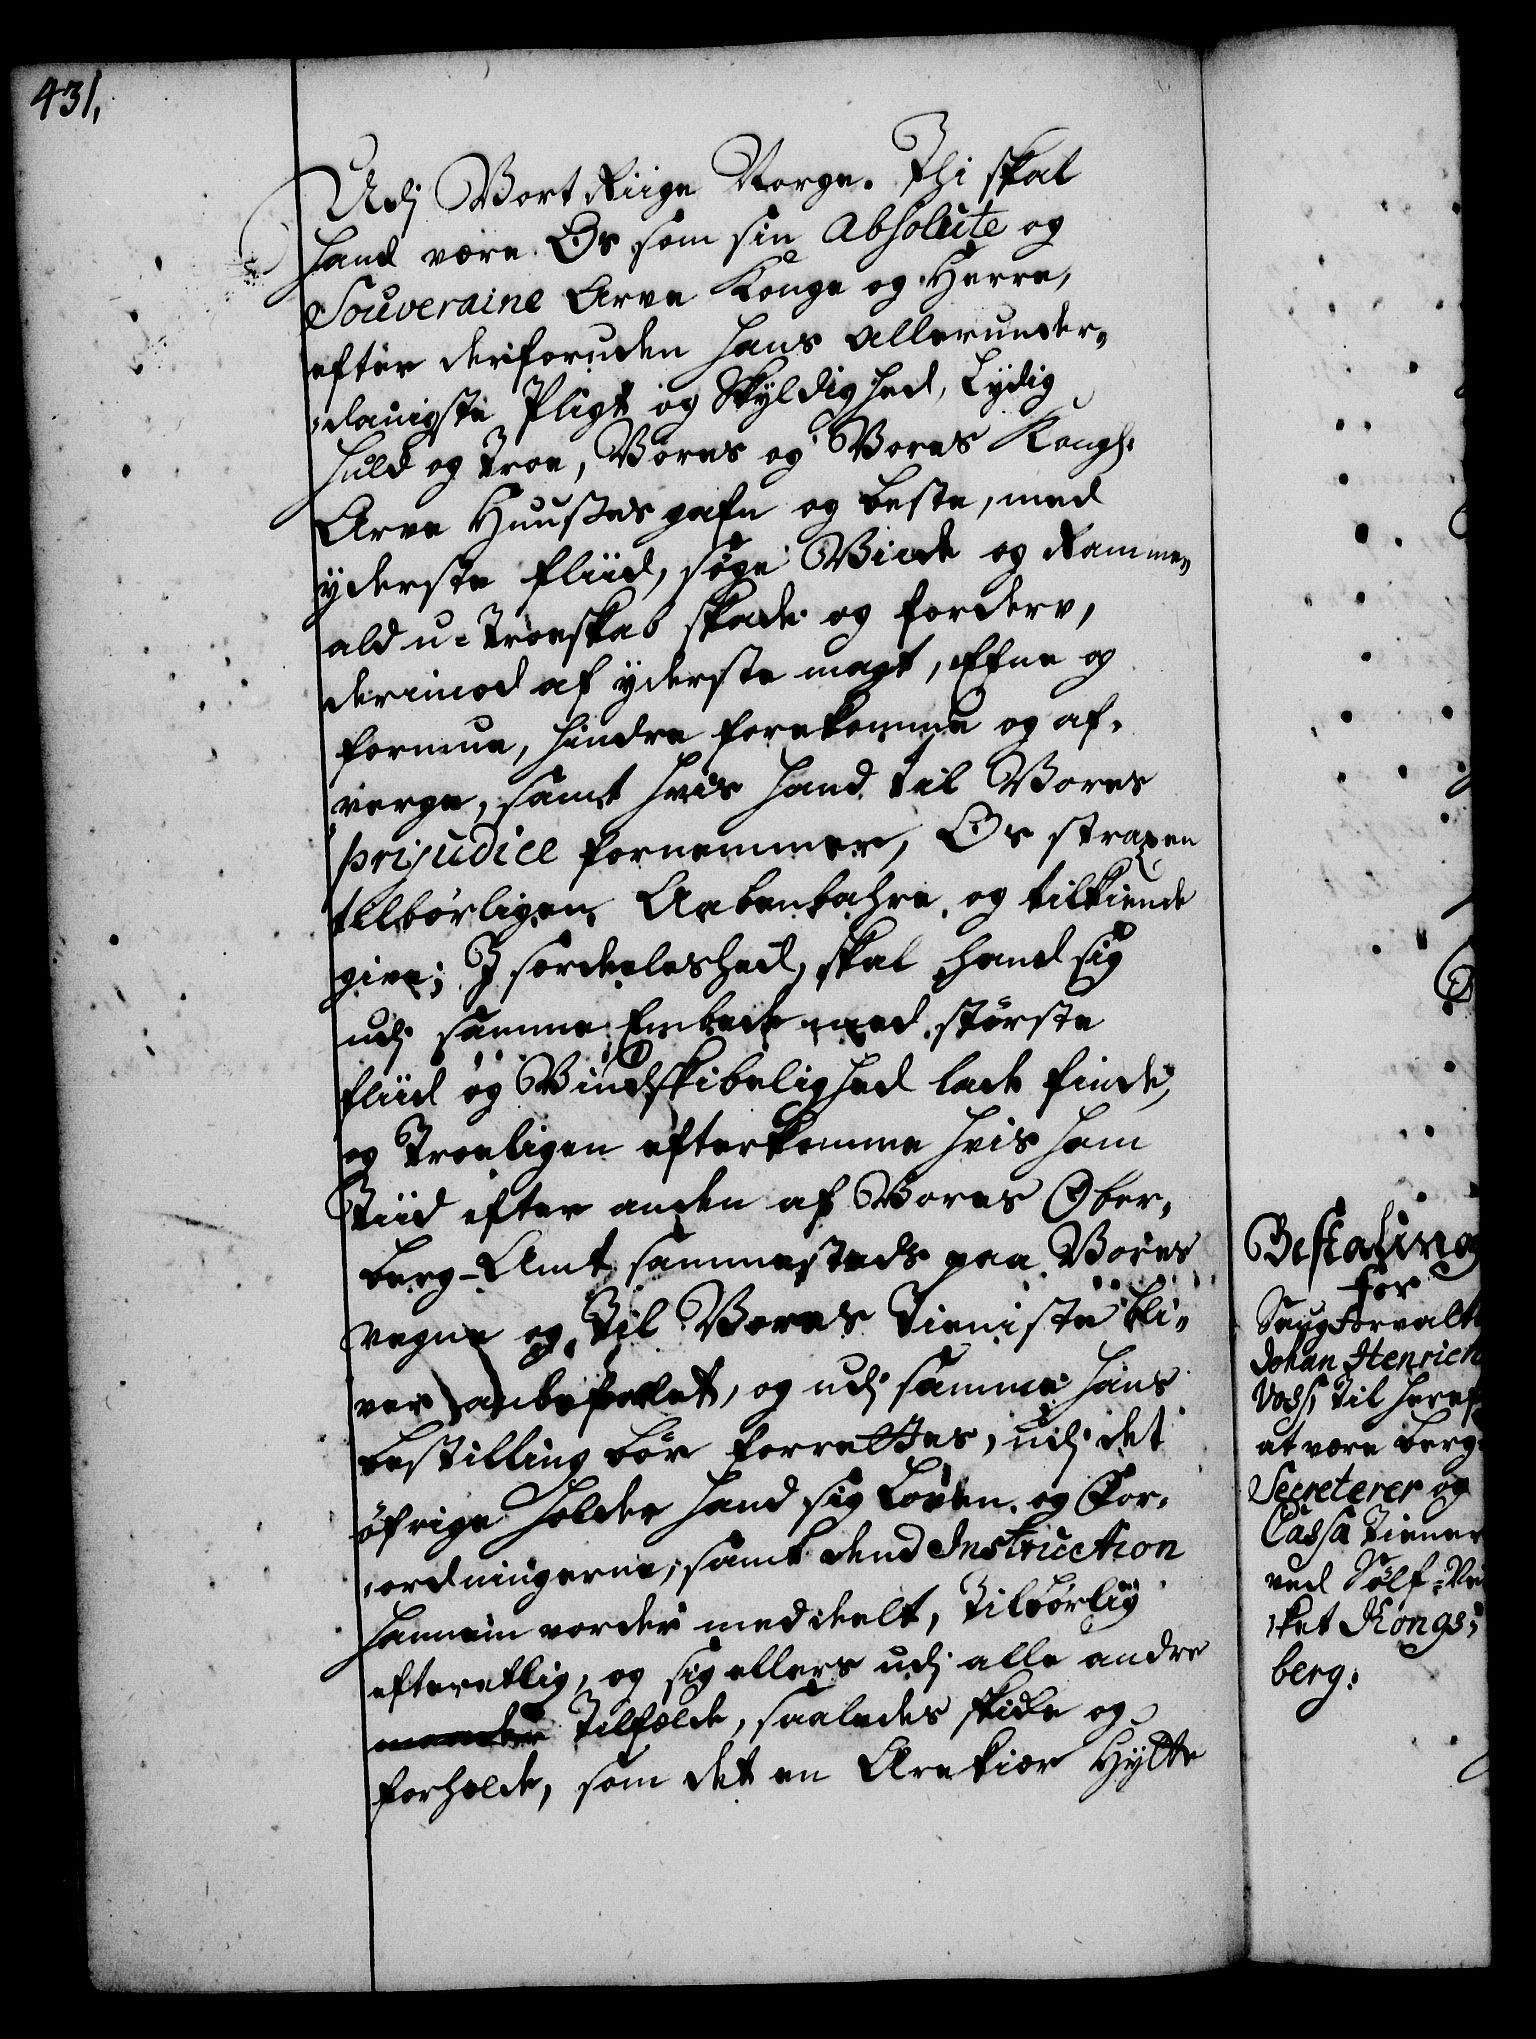 431,
Udj Vort Riige Norge. Thi skal
hand være Os som sin Absolute og
Souveraine Arve Konge og Herre,
efter derforuden hans allerunder„
„danigste Pligt og Skyldighed, Lydig
huld og troe, Vores og Vores Kongl.
Arve Huuszes gafn og beste, med
yderste fliid, søge Viide og Ramme„
ald u-troeskab skade og forderv,
derimod af yderste magt, Efne og
formue, hindre forekomme og af„
verge, samt hvis hand til Vores
prijudice fornemmer, Os straxen
tilbørligen Aabenbahre, og tilkiende
give; J særdeeleshed, skal hand sig
udj samme Embede med største
fliid og Vindskibelighed lade finde,
og Troeligen efterkomme hvis ham
Tiid efter anden af Vores Ober„
berg-Amt sammesteds paa Vores
vegne og til Vores Tieniste bli„
ver anbefalet, og udj samme hans
bestilling bør forrettes, udj det
öfrige Holder hand sig Loven og For„
„ordningerne, samt dend Instruction
hannem vorder meddeelt, Tilbørlig
efterretlig, og sig ellers udj alle andre
Tilfælde, saaledes skicke og
forholde, som det en Ærekiær Hytte
Bestalling
for
Johan Henrich
Voss, til heref
at være berg-
Secreterer og
Cassa Tiener
ved Sølf-Ver
„ket Kongs„
berg.